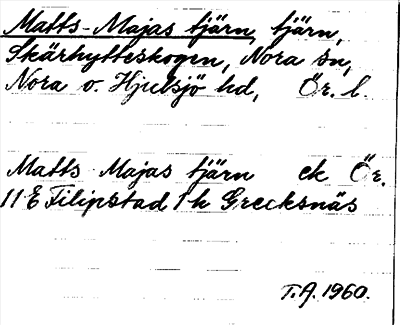 Matts-Majas tjärn, tjärn,
Skärhytteskogen, Nora sn,
Nora o. Hjulsjö hd, Ör. l.
Matts Majas tjärn ek Ör.
11 E Filipstad 1 h Grecksnäs
T.A. 1960.